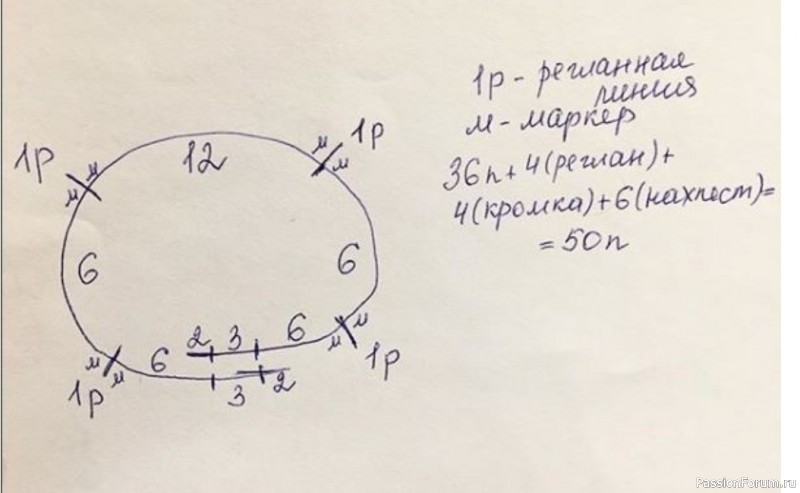 1р - регланная
линия
м - маркер
36п + 4(реглан)+
4(кромка)+6(нахлест)=
= 50п
1р
м м
12
м м
1р
6
6
2 3 6
м м
6
м м
1р
1р
3 2
PassionForum.ru